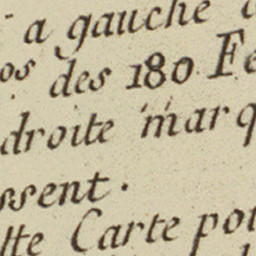 a gauche
os des 180 Fe
droite marq
ssent.
tte Carte pou